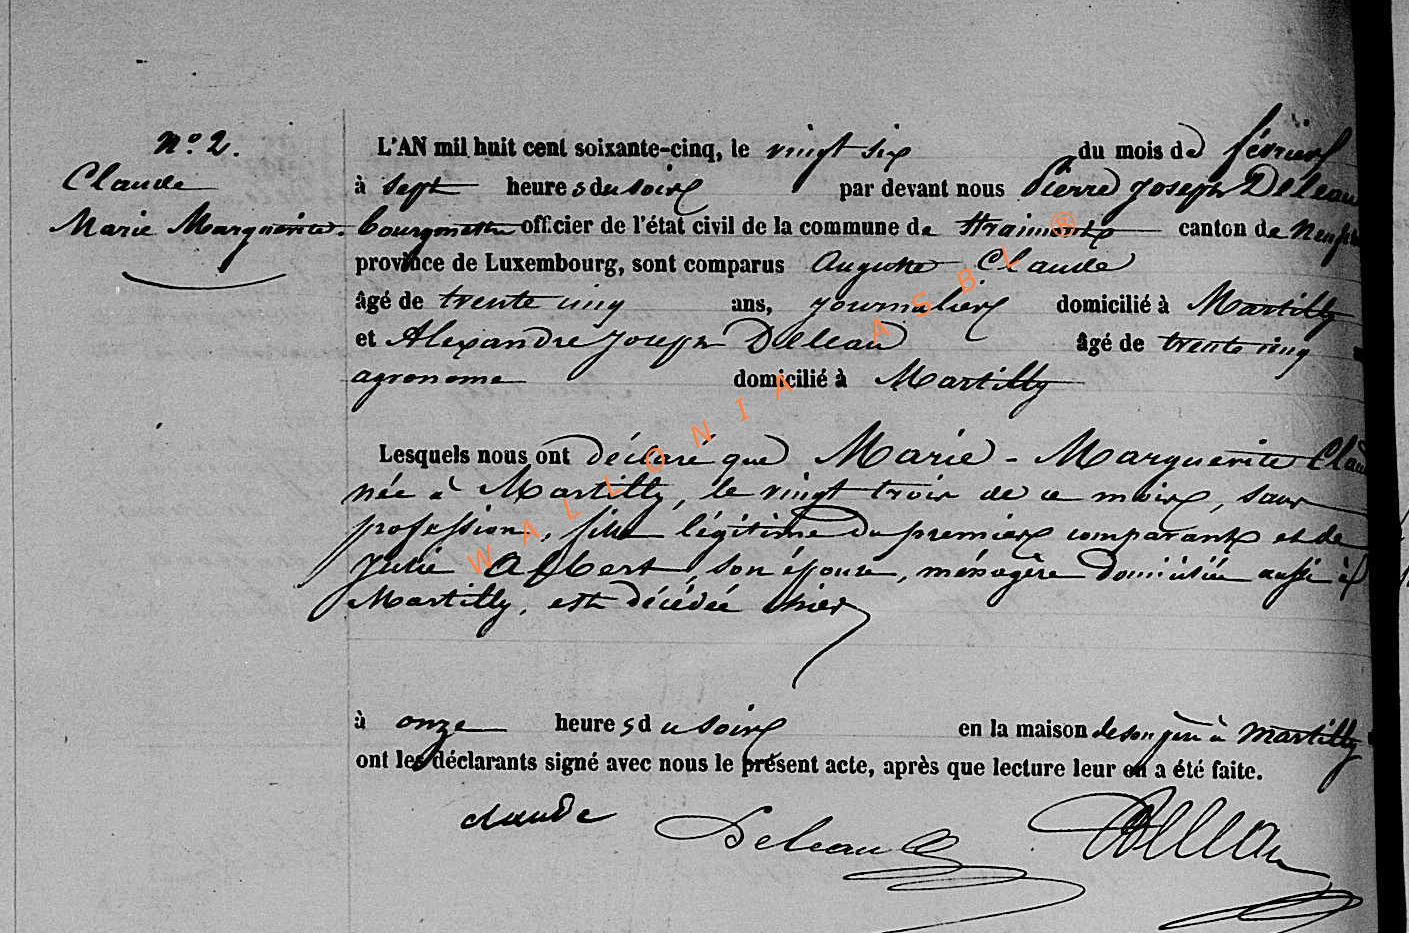 n.º 2.
Claude
Marie Marguerite.
L'AN mil huit cent soixante-cinq, le vingt six du mois de février
à sept heures du soir par devant nous Pierre Joseph Deleau
bourgmestre officier de l'état civil de la commune de Straimont canton de Neufch
province de Luxembourg, sont comparus Auguste Claude
âgé de trente cinq ans, journalier domicilié à Martilly
et Alexandre Joseph Deleau âgé de trente cinq
agronome domicilié à Martilly
Lesquels nous ont déclaré que Marie-Marguerite Claud
née à Martilly, le vingt trois de ce mois, sans
profession, fille légitime du premier comparant et de
Julie Albert, son épouse, ménagère domiciliée aussi à
Martilly, est décédée hier
à onze heures du soir en la maison de son père à Martilly
ont les déclarants signé avec nous le présent acte, après que lecture leur en a été faite.
claude Deleau Deleau
WALLONIA ASBL ®